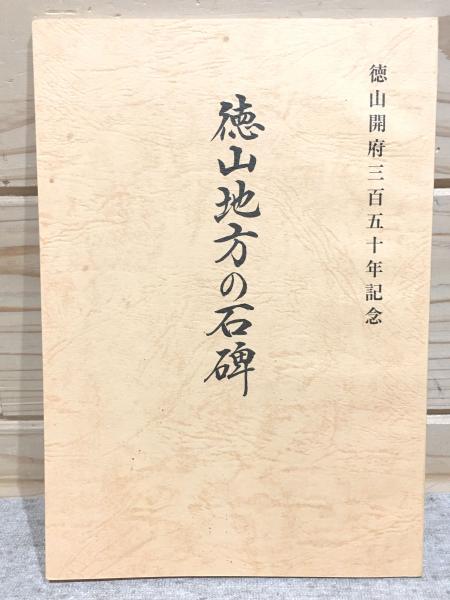 徳山開府三百五十年記念
徳山地方の石碑